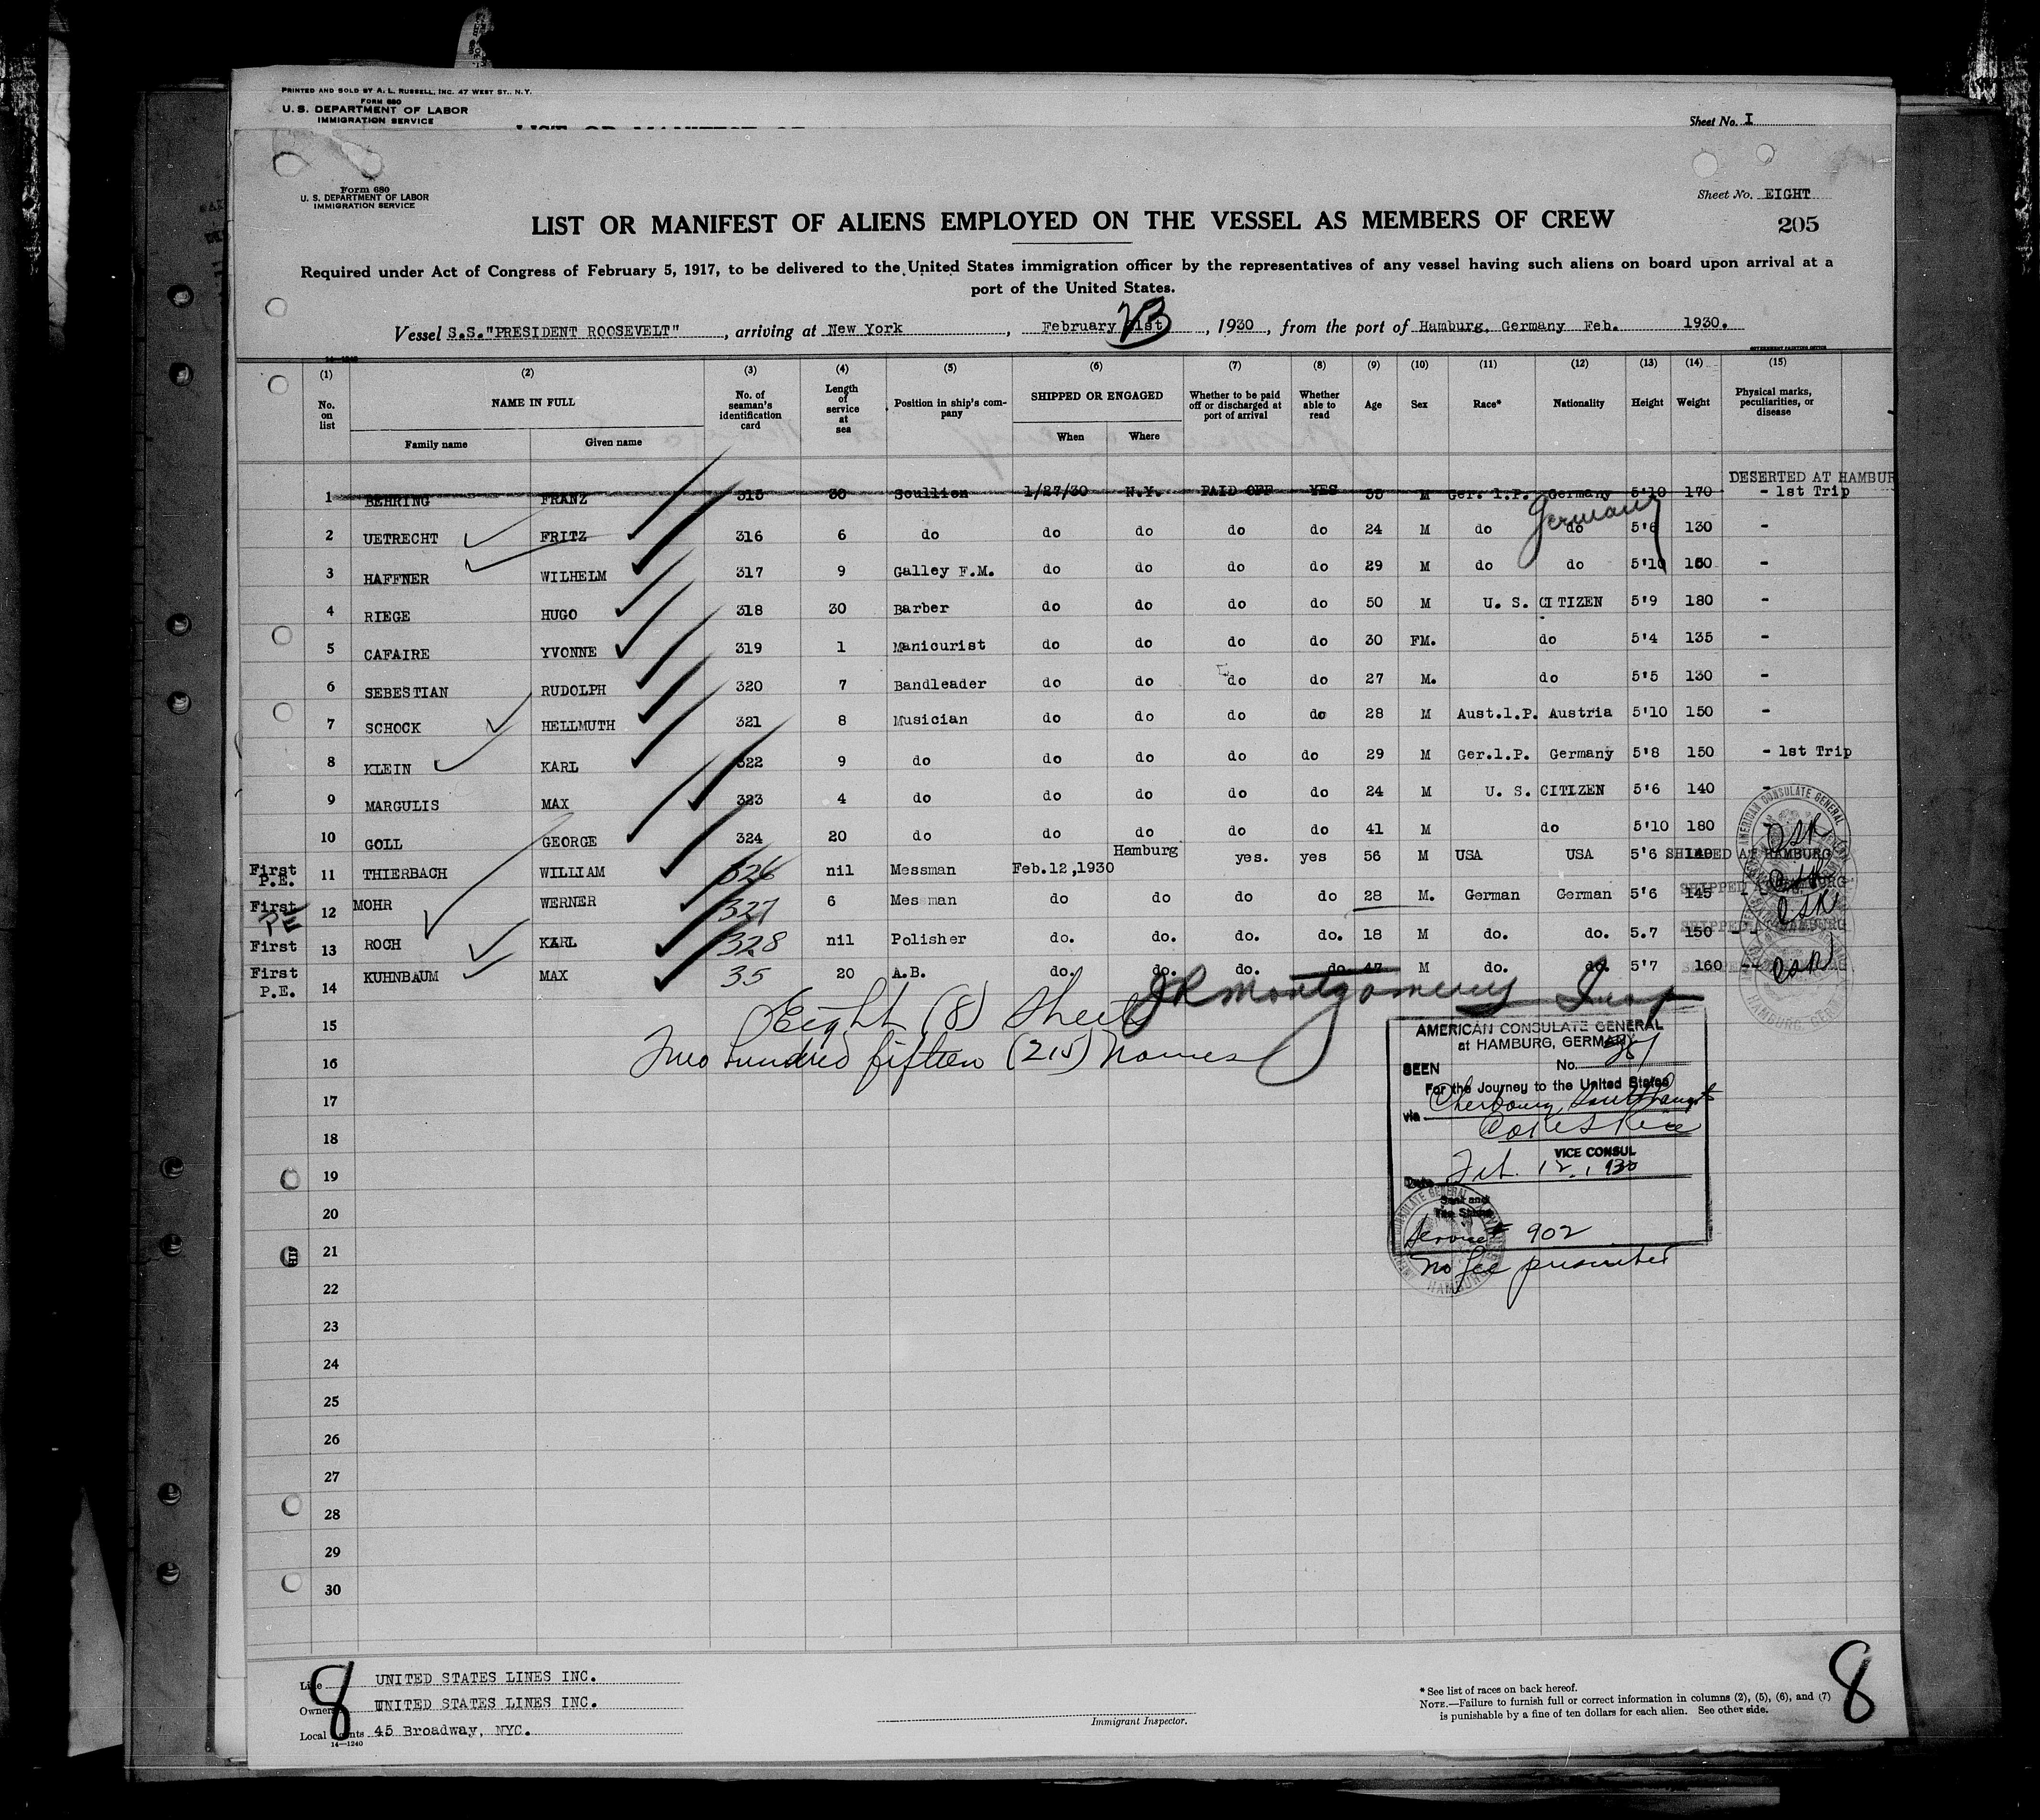 PRINTED AND SOLD BY A. L. RUSSELL, INC. 47 WEST ST., N. Y.
FORM 680
U. S. DEPARTMENT OF LABOR
IMMIGRATION SERVICE
Sheet No. I
Form 680
U. S. DEPARTMENT OF LABOR
IMMIGRATION SERVICE
Sheet No. EIGHT
205
LIST OR MANIFEST OF ALIENS EMPLOYED ON THE VESSEL AS MEMBERS OF CREW
Required under Act of Congress of February 5, 1917, to be delivered to the United States immigration officer by the representatives of any vessel having such aliens on board upon arrival at a
port of the United States.
Vessel S.S."PRESIDENT ROOSEVELT", arriving at New York, February 23, 1930, from the port of Hamburg, Germany Feb. 1930.
(1) (2) (3) (4) (5) (6) (7) (8) (9) (10) (11) (12) (13) (14) (15)
No. on list NAME IN FULL Family name Given name No. of seaman's identification card Length of service at sea Position in ship's company SHIPPED OR ENGAGED When Where Whether to be paid off or discharged at port of arrival Whether able to read Age Sex Race* Nationality Height Weight Physical marks, peculiarities, or disease
DESERTED AT HAMBUR
1 BEHRING FRANZ 315 30 Scullion 1/27/30 N.Y. PAID OFF YES 55 M Ger. l.P. Germany 5'10 170 - 1st Trip
Germany
2 UETRECHT FRITZ 316 6 do do do do do 24 M do do 5'6 130 -
3 HAFFNER WILHELM 317 9 Galley F.M. do do do do 29 M do do 5'10 160 -
4 RIEGE HUGO 318 30 Barber do do do do 50 M U. S. CITIZEN 5'9 180 -
5 CAFAIRE YVONNE 319 1 Manicurist do do do do 30 FM. do 5'4 135 -
6 SEBESTIAN RUDOLPH 320 7 Bandleader do do do do 27 M. do 5'5 130 -
7 SCHOCK HELLMUTH 321 8 Musician do do do do 28 M Aust.l.P. Austria 5'10 150 -
8 KLEIN KARL 322 9 do do do do do 29 M Ger.l.P. Germany 5'8 150 - 1st Trip
9 MARGULIS MAX 323 4 do do do do do 24 M U. S. CITIZEN 5'6 140 -
10 GOLL GEORGE 324 20 do do do do do 41 M do 5'10 180
First P.E. 11 THIERBACH WILLIAM 326 nil Messman Feb.12,1930 Hamburg yes. yes 56 M USA USA 5'6 140 SHIPPED AT HAMBURG
First PE 12 MOHR WERNER 327 6 Mes man do do do do 28 M. German German 5'6 145 SHIPPED AT HAMBURG
First 13 ROCH KARL 328 nil Polisher do. do. do. do. 18 M do. do. 5.7 150 -- SHIPPED AT HAMBURG
First P.E. 14 KUHNBAUM MAX 35 20 A.B. do. do. do. do 47 M do. do. 5'7 160 --
JR Montgomery Insp
15 Eight (8) Sheets
16 Two hundred fifteen (215) names
17
18
19
20
21
22
23
24
25
26
27
28
29
30
AMERICAN CONSULATE GENERAL
at HAMBURG, GERMANY
SEEN No.
For the Journey to the United States
via Cherbourg, Southampt
VICE CONSUL
Date Feb. 12, 1930
Service # 902
No fee prescribed
AMERICAN CONSULATE GENERAL
HAMBURG, GERMANY
8
Line UNITED STATES LINES INC.
Owners UNITED STATES LINES INC.
Local Agents 45 Broadway, NYC.
14—1240
Immigrant Inspector.
* See list of races on back hereof.
NOTE.—Failure to furnish full or correct information in columns (2), (5), (6), and (7)
is punishable by a fine of ten dollars for each alien. See other side.
8